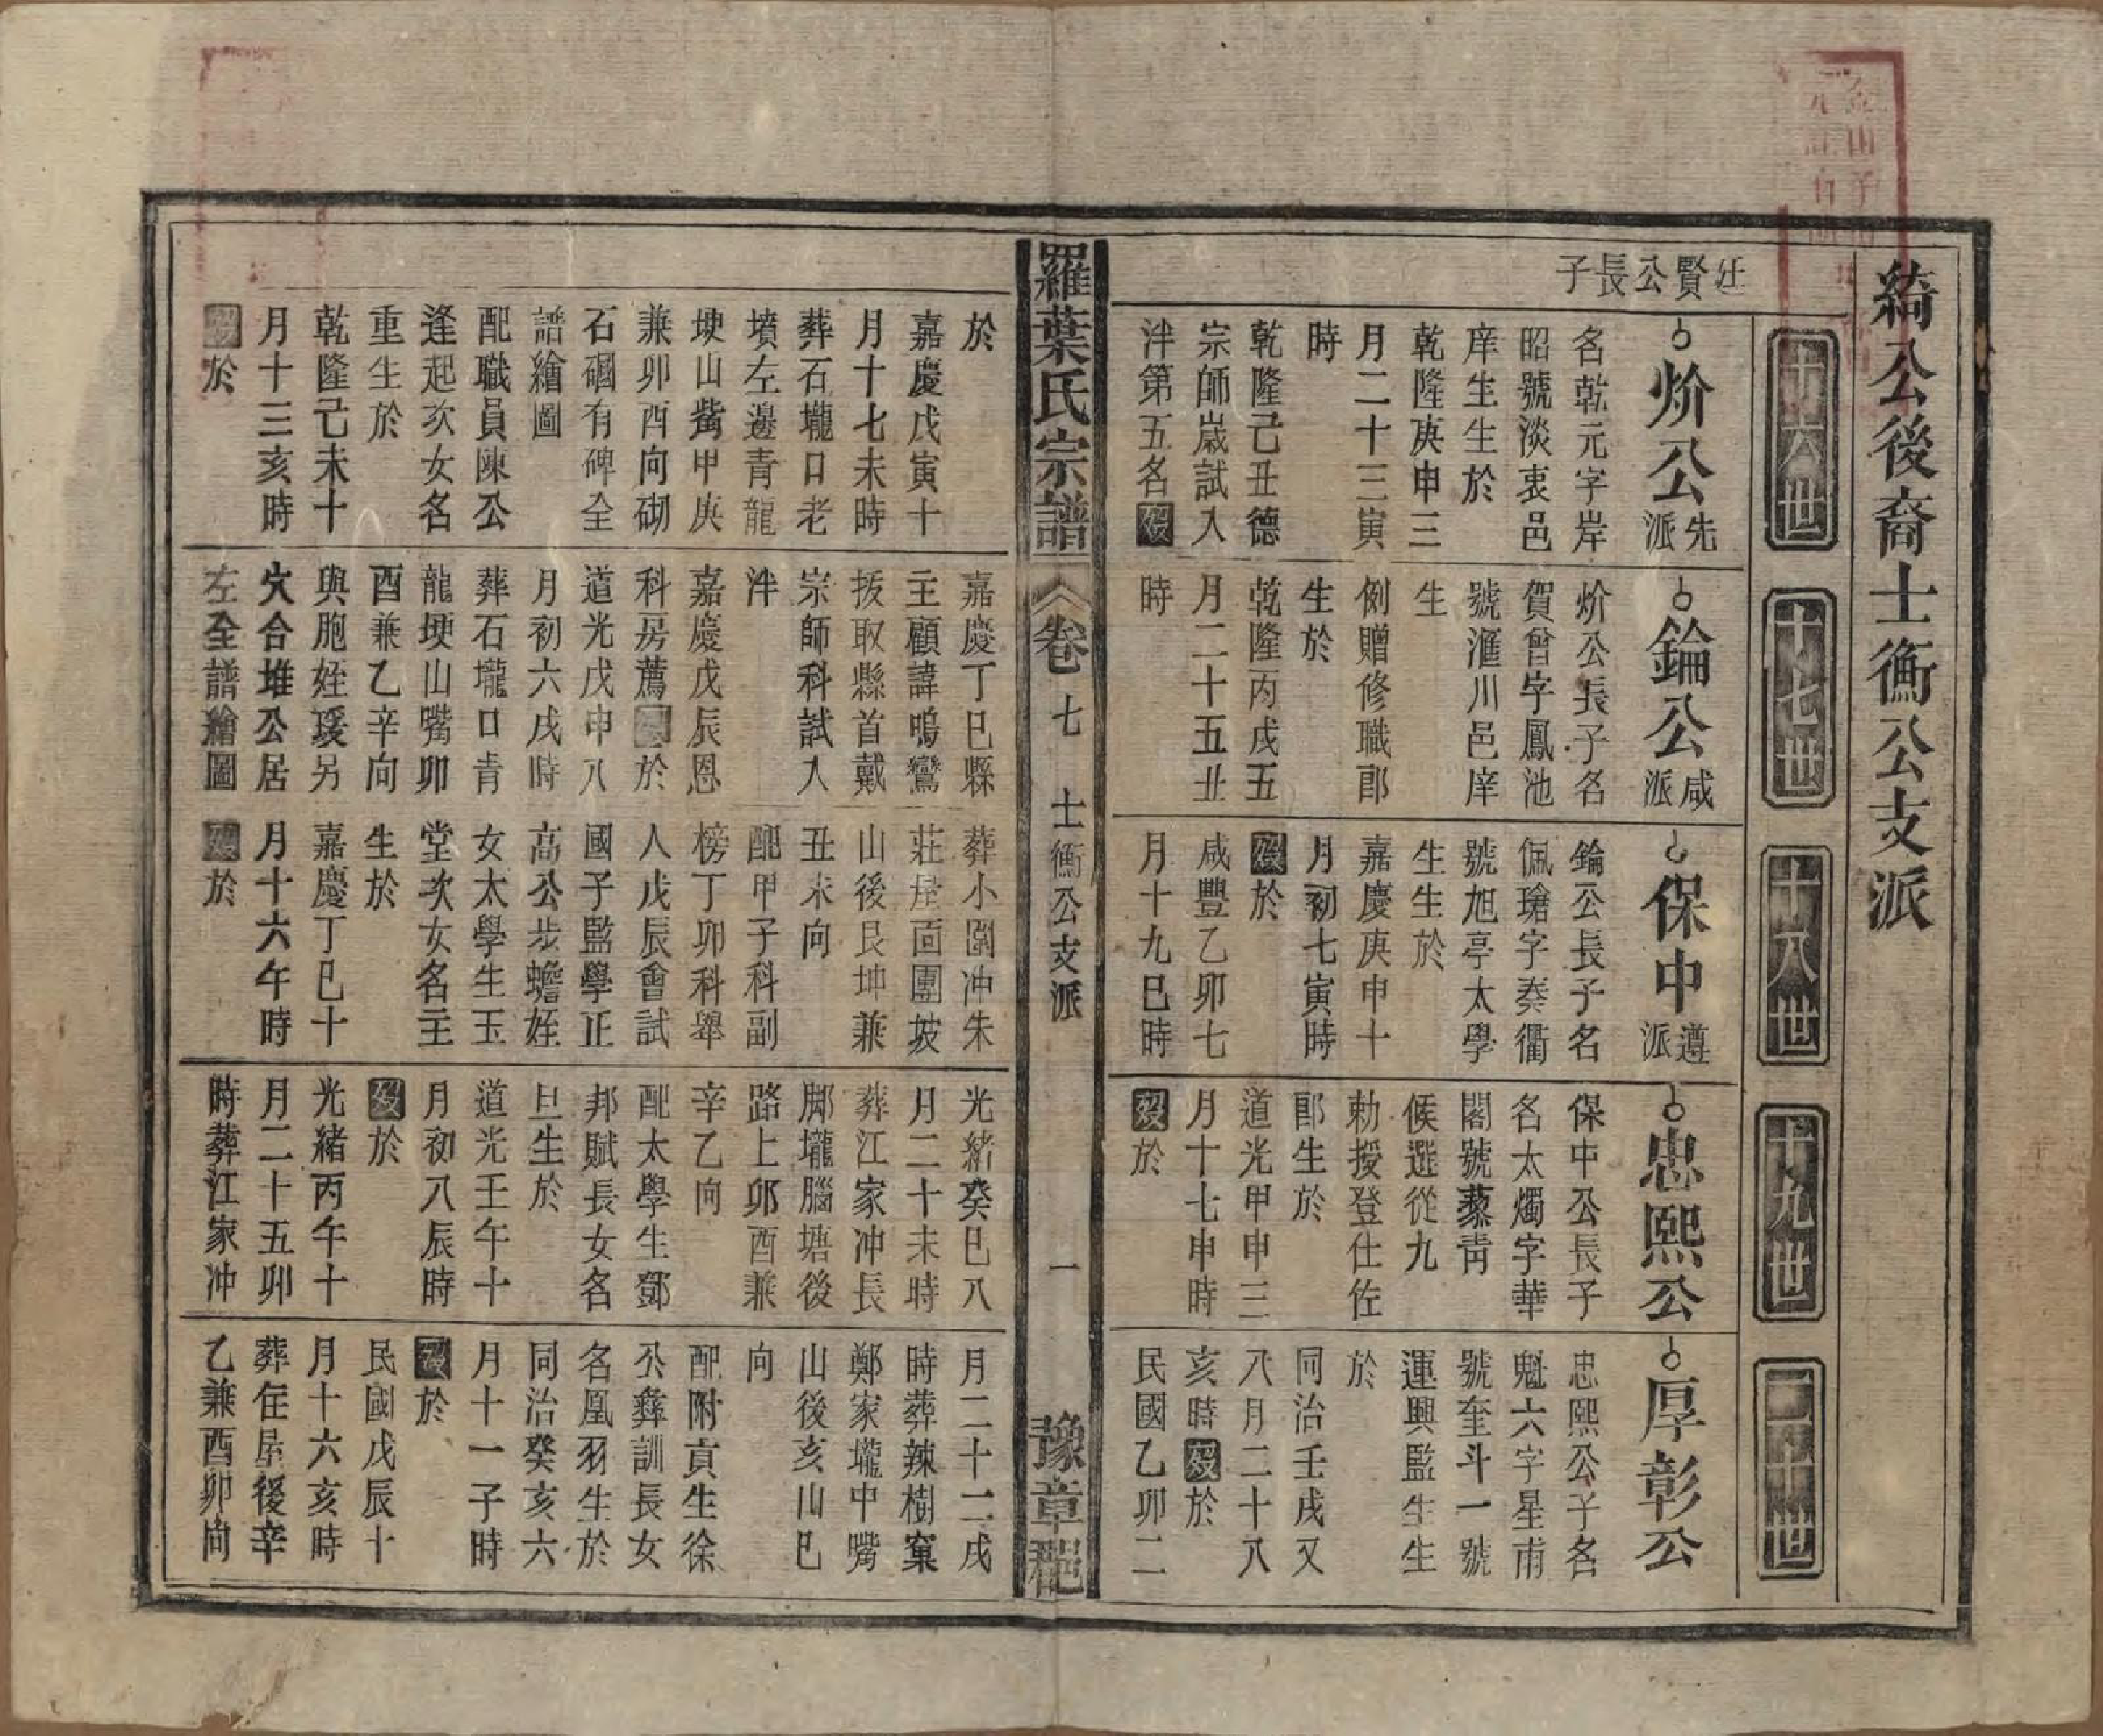 綺公後裔士衡公支派
十六世
十七世
十八世
十九世
二十世
賢公長子
炌公
先派
名乾元字岸
昭號淡衷邑
庠生生於
乾隆庚申三
月二十三寅
時
乾隆己丑德
宗師歲試入
泮第五名歿
錀公
咸派
炌公長子名
賀曾字鳳池
號滙川邑庠
生
例贈修職郎
生於
乾隆丙戌五
月二十五丑
時
保中
遵派
錀公長子名
佩瑲字奏衢
號旭亭太學
生生於
嘉慶庚申十
月初七寅時
歿於
咸豐乙卯七
月十九巳時
忠熙公
保中公長子
名太燭字華
閣號藜靑
候選從九
勅授登仕佐
郎生於
道光甲申三
月十七申時
歿於
厚彰公
忠熙公子名
魁六字星甫
號奎斗一號
運興監生生
於
同治壬戌又
八月二十八
亥時歿於
民國乙卯二
羅葉氏宗譜
卷七 士衡公支派
一
豫章郡
於
嘉慶戊寅十
月十七未時
葬石壠口老
墳左邊青龍
埂山觜甲庚
兼卯酉向砌
石磵有碑全
譜繪圖
配職員陳公
逢起次女名
重生於
乾隆己未十
月十三亥時
歿於
嘉慶丁巳縣
主顧諱鳴鸞
拔取縣首戴
宗師科試入
泮
嘉慶戊辰恩
科房薦歿於
道光戊申八
月初六戌時
葬石壠口青
龍埂山嘴卯
酉兼乙辛向
與胞姪瑗另
穴合堆公居
左全譜繪圖
葬小園冲朱
莊屋面團坡
山後艮坤兼
丑未向
配甲子科副
榜丁卯科舉
人戊辰會試
國子監學正
高公步蟾姪
女太學生玉
堂次女名主
生於
嘉慶丁巳十
月十六午時
歿於
光緒癸巳八
月二十未時
葬江家冲長
脚壠腦塘後
路上卯酉兼
辛乙向
配太學生鄧
邦賦長女名
旦生於
道光壬午十
月初八辰時
歿於
光緒丙午十
月二十五卯
時葬江家冲
月二十二戌
時葬辣樹窠
鄭家壠中嘴
山後亥山巳
向
配附貢生徐
公彝訓長女
名凰羽生於
同治癸亥六
月十一子時
歿於
民國戊辰十
月十六亥時
葬住屋後辛
乙兼酉卯向